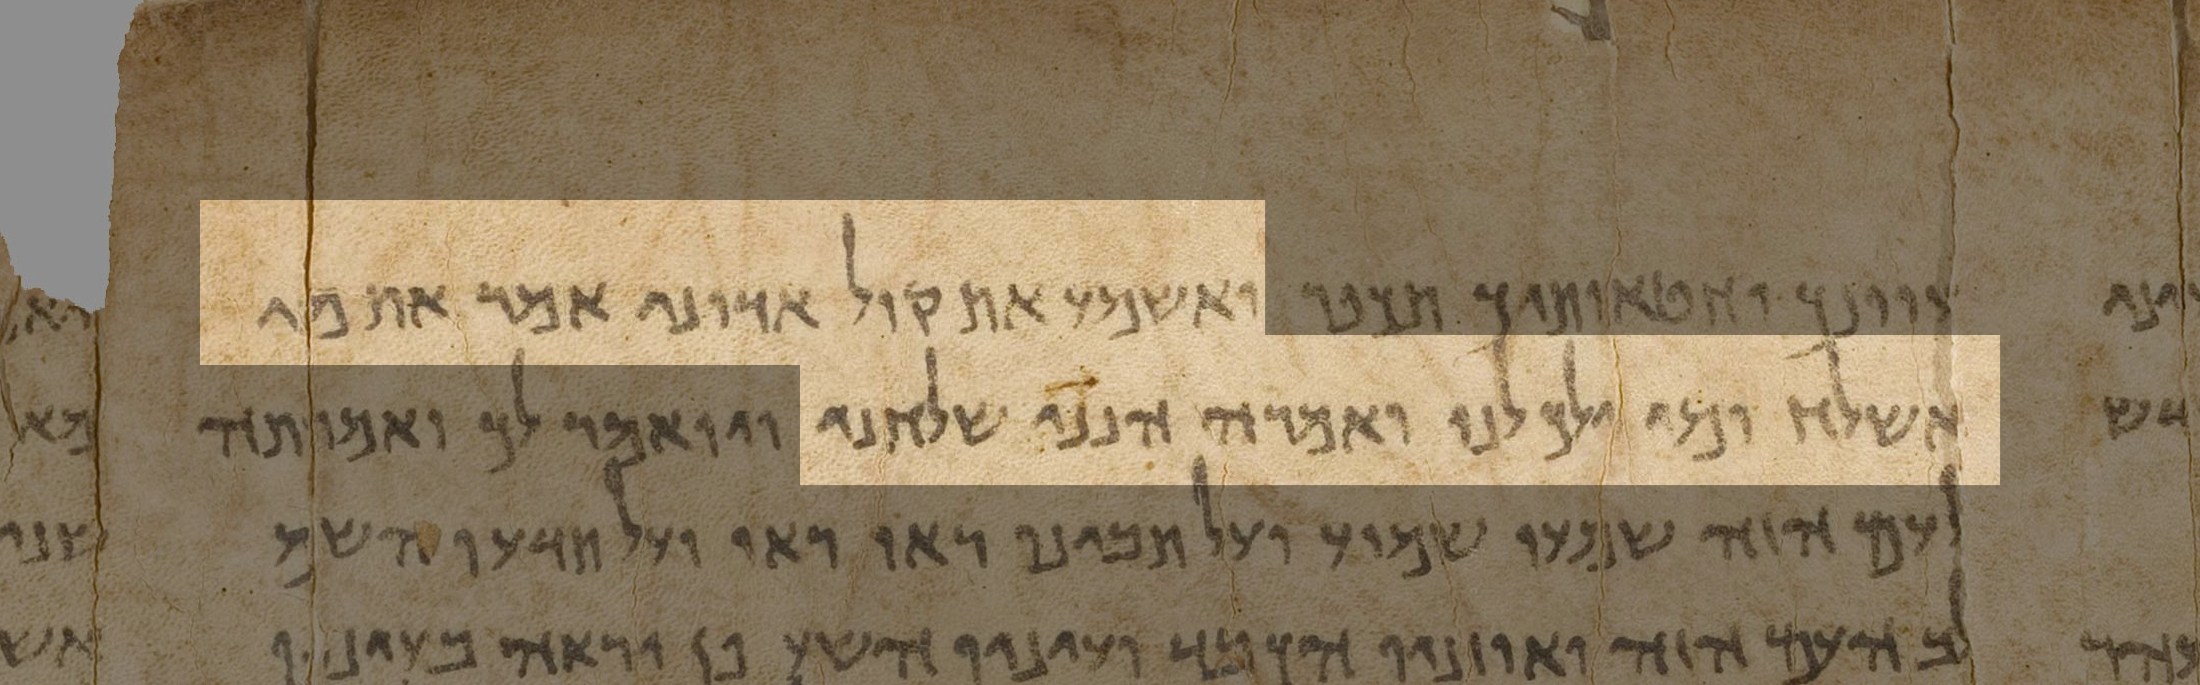 עוונך וחטאותיך תכפר ואשמע את קול אדוני אמר את מי
אשלח ומי ילך לנו ואמרה הנני שלחני ויואמר לך ואמרתה
לעם הזה שמעו שמוע ועל תבינו ראו ראו ועל תדעו השמ
לב העם הזה ואוזניו הכבד ועיניו השע פן יראה בעיניו